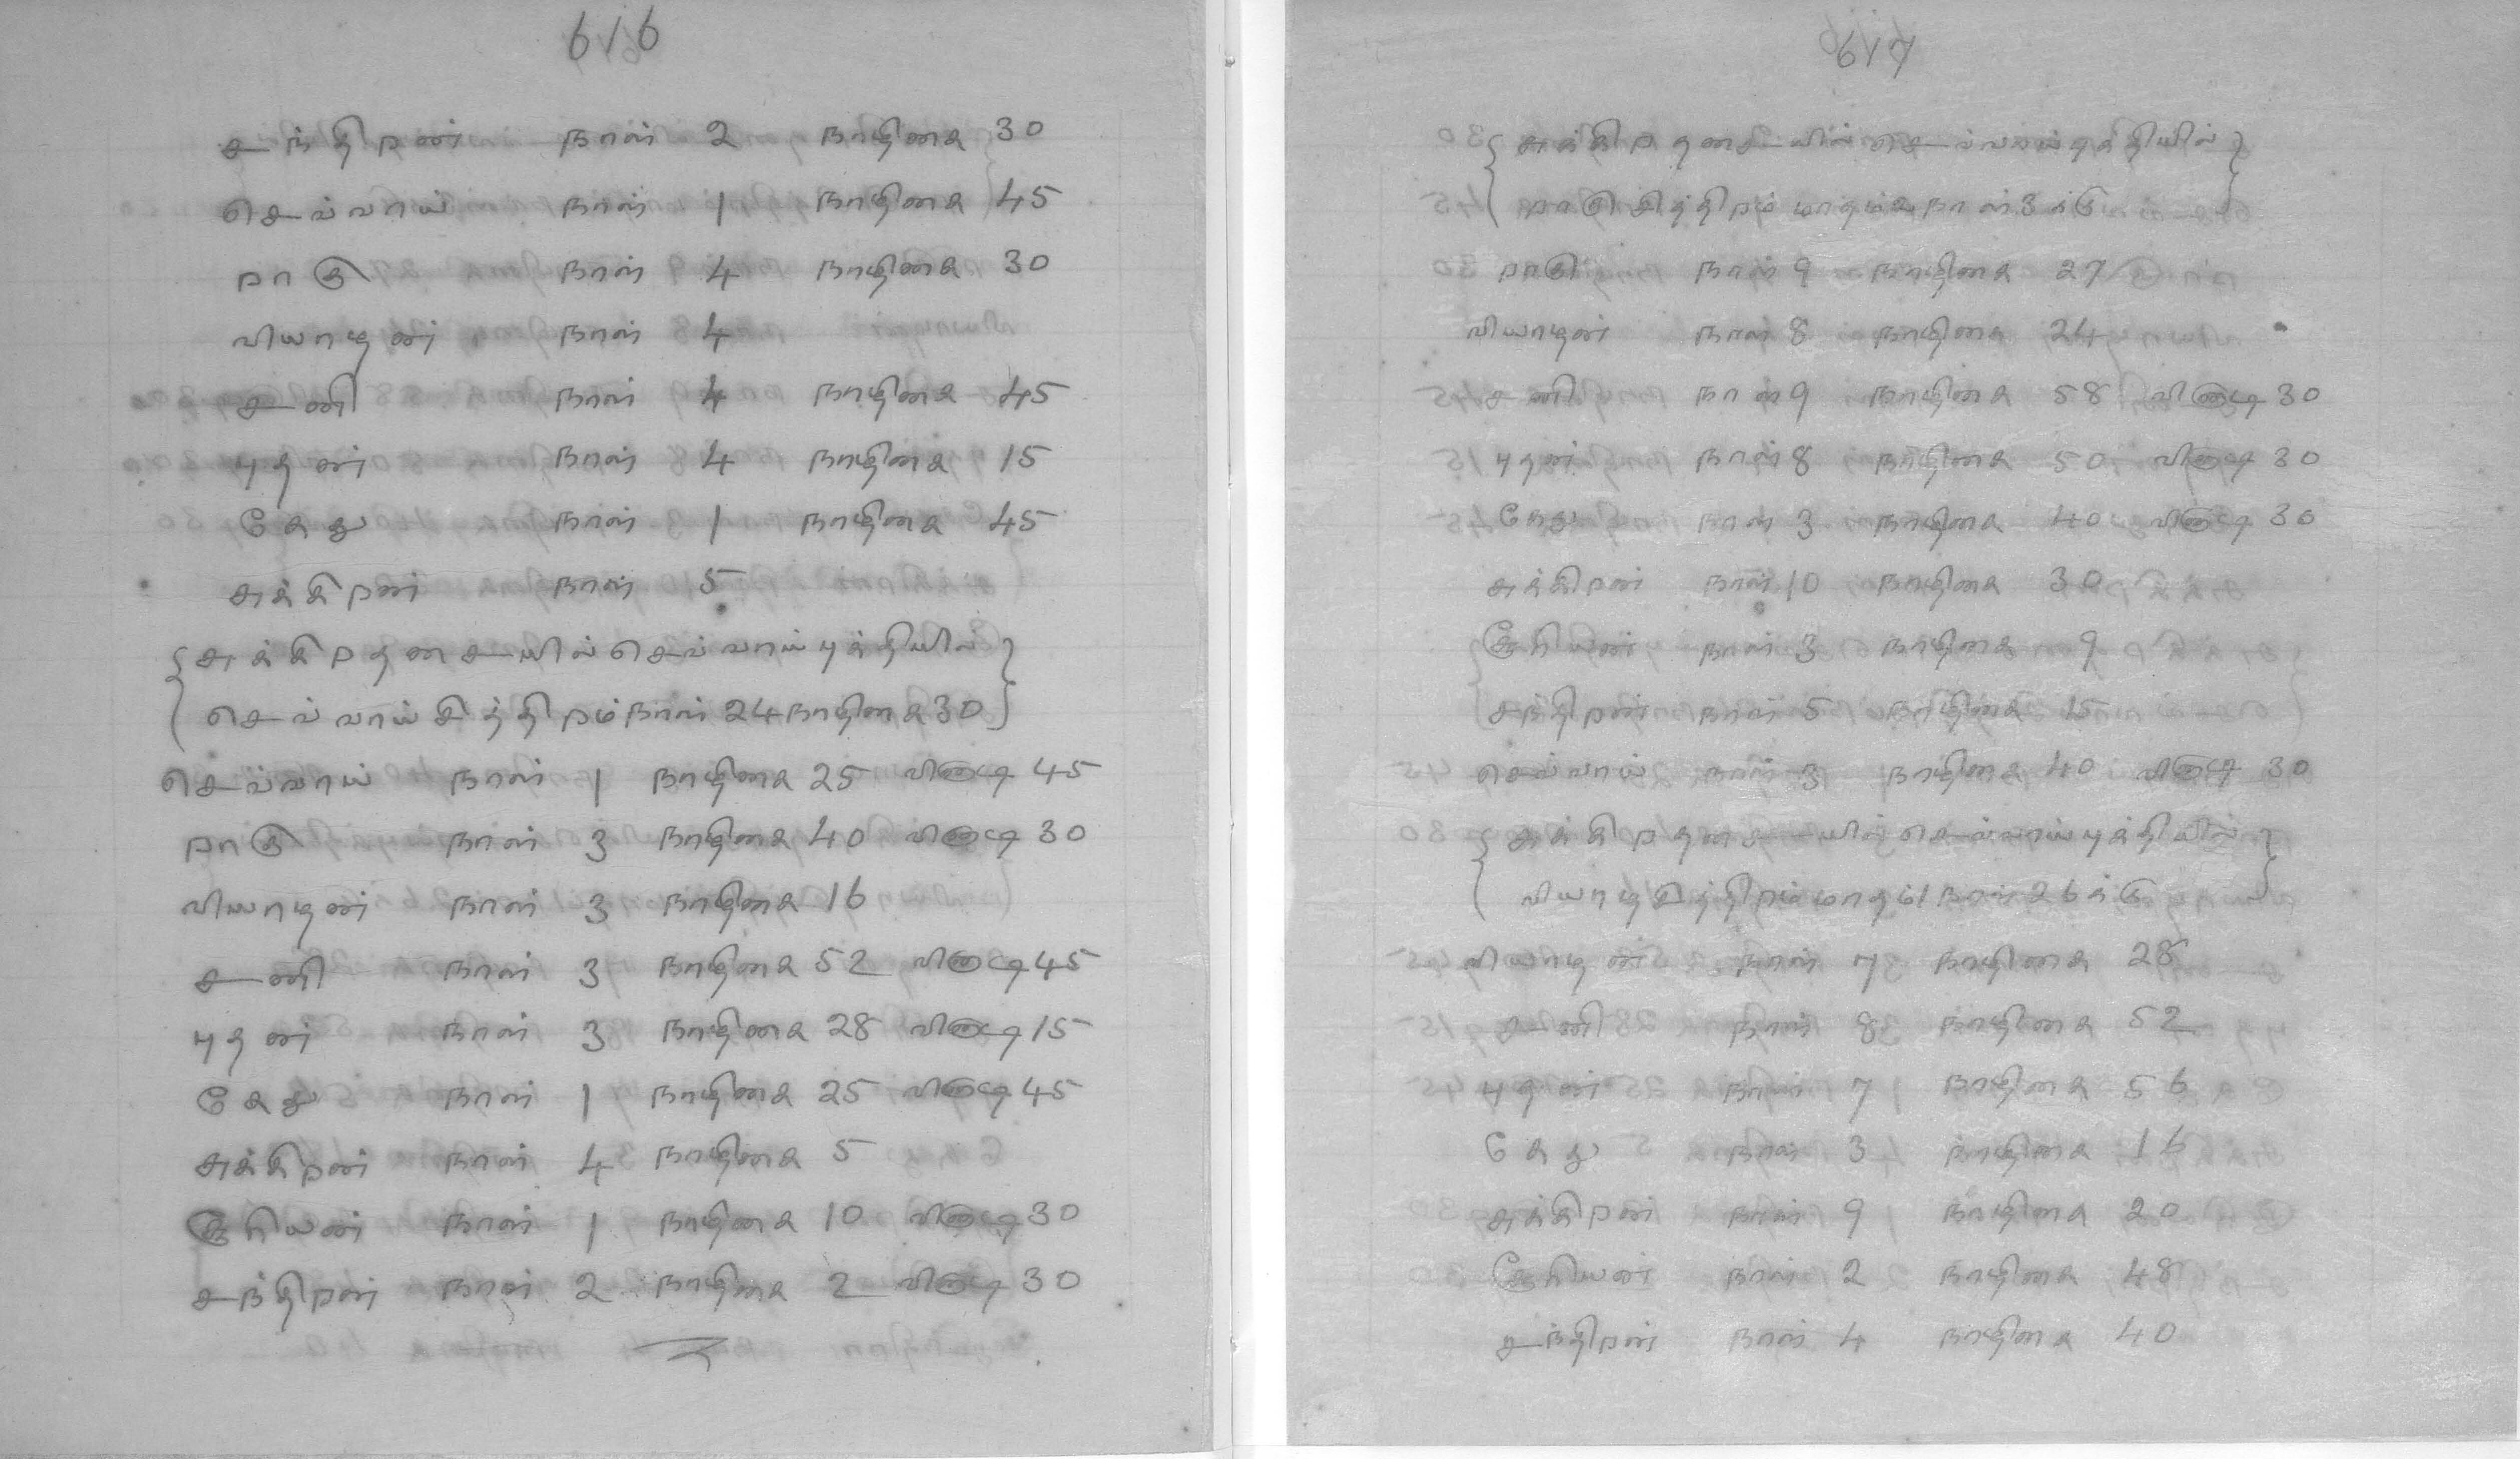 616
சந்திறன் நாள் 2 நாழிகை 30
செவ்வாய் நாள் 1 நாழிகை 45
றாகு நாள் 4 நாழிகை 30
வியாழன் நாள் 4
சனி நாள் 4 நாழிகை 45
புதன் நாள் 4 நாழிகை 15
கேது நாள் 1 நாழிகை 45
சுக்கிறன் நாள் 5
{சுக்கிறதசையில் செவ்வாய்புக்தியில்}
{செவ்வாய்சித்திறம்நாள் 24 நாழிகை 30}
செவ்வாய் நாள் 1 நாழிகை 25 வினாடி 45
றாகு நாள் 3 நாழிகை 40 வினாடி 30
வியாழன் நாள் 3 நாழிகை 16
சனி நாள் 3 நாழிகை 52 வினாடி 45
புதன் நாள் 3 நாழிகை 28 வினாடி 15
கேது நாள் 1 நாழிகை 25 வினாடி 45
சுக்கிறன் நாள் 4 நாழிகை 5
சூரியன் நாள் 1 நாழிகை 10 வினாடி 30
சந்திறன் நாள் 2 நாழிகை 2 வினாடி 30
617
{சுக்கிறதசையில் செவ்வாய்புக்தியில்}
{றாகுசித்திறம் மாதம் நாள் 3க்கு}
றாகு நாள் 9 நாழிகை 27
வியாழன் நாள் 8 நாழிகை 24
சனி நாள் 9 நாழிகை 58 வினாடி 30
புதன் நாள் 8 நாழிகை 50 வினாடி 30
கேது நாள் 3 நாழிகை 40 வினாடி 30
சுக்கிறன் நாள் 10 நாழிகை 30
சூரியன் நாள் 3 நாழிகை 9
சந்திறன் நாள் 5 நாழிகை 15
செவ்வாய் நாள் 3 நாழிகை 40 வினாடி 30
{சுக்கிறதசையில் செவ்வாய்புக்தியில்}
{வியாழசித்திறம் மாதம் 1 நாள் 26க்கு}
வியாழன் நாள் 7 நாழிகை 28
சனி நாள் 8 நாழிகை 52
புதன் நாள் 7 நாழிகை 56
கேது நாள் 3 நாழிகை 16
சுக்கிறன் நாள் 9 நாழிகை 20
சூரியன் நாள் 2 நாழிகை 48
சந்திறன் நாள் 4 நாழிகை 40